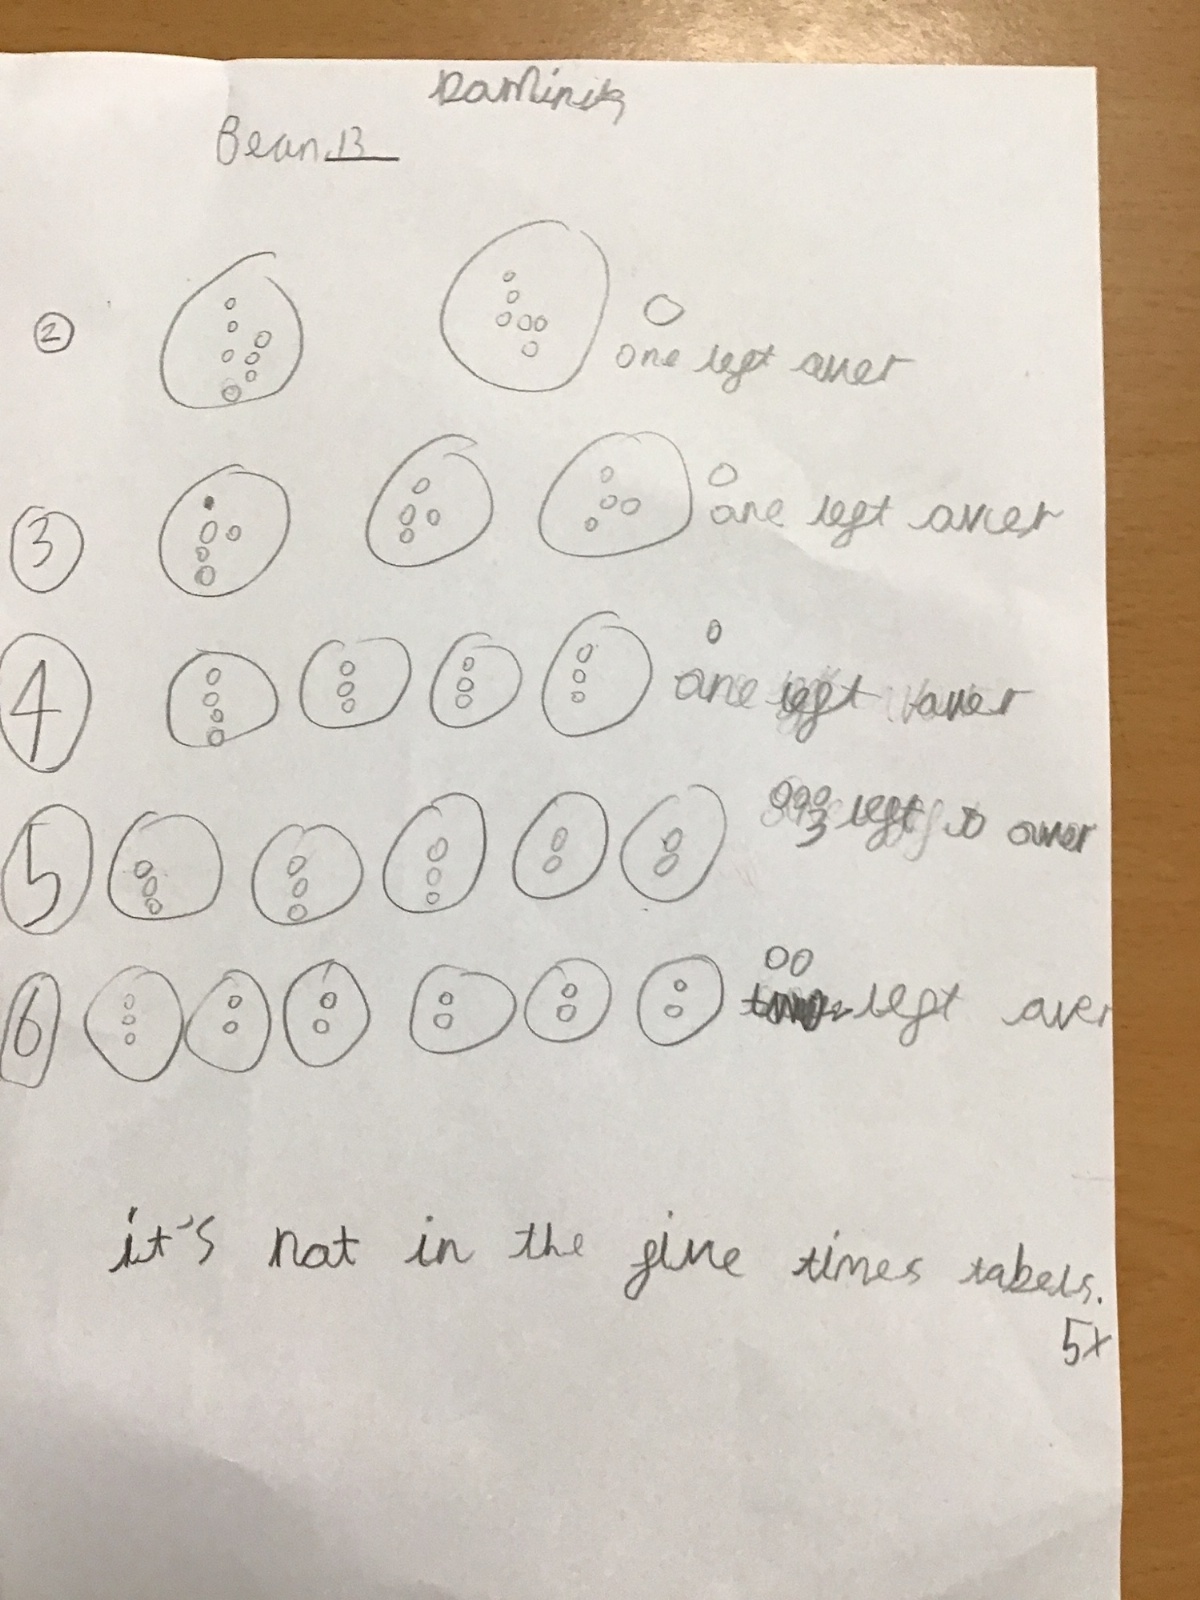 Daminik
Bean 13
2
one left over
3
one left over
4
one left over
5
3 left over
6
left over
it's not in the five times tabels.
5x